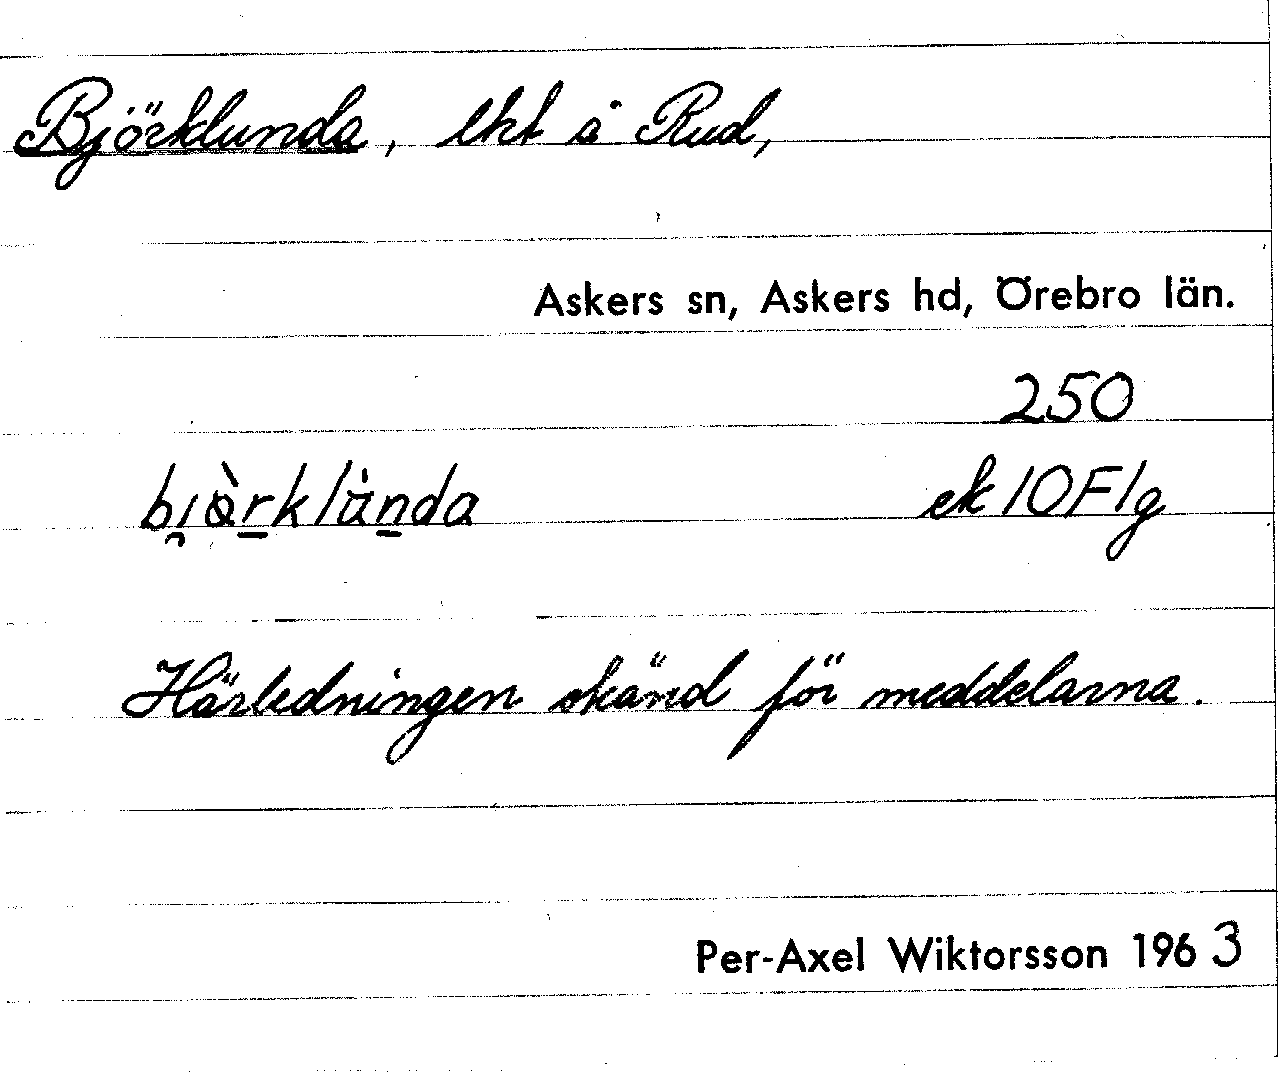 Björklunda, lht å Rud,
Askers sn, Askers hd, Örebro län.
250
bjärklùnda ek 10 F lg
Härledningen okänd för meddelarna.
Per-Axel Wiktorsson 1963